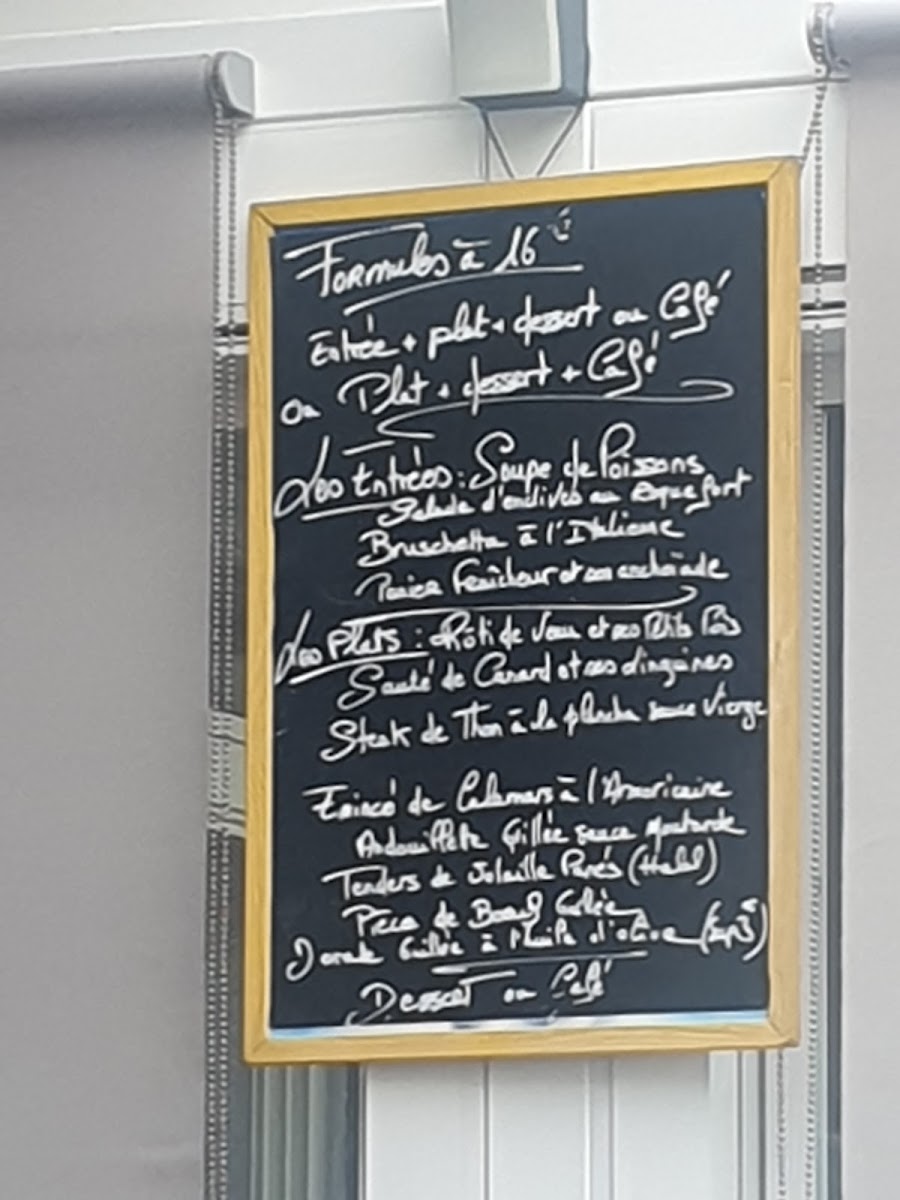 Formules à 16 €
Entrée + plat + dessert ou Café
Ou Plat + dessert + Café
Les Entrées : Soupe de Poissons
Salade d'endives au Roquefort
Bruschetta à l'Italienne
Panier Fraîcheur et son anchoïade
Les Plats : Rôti de Veau et ses Petits Pois
Sauté de Canard et ses linguines
Steak de Thon à la plancha sauce Vierge
Emincé de Calamars à l'Américaine
Andouillette Grillée sauce Moutarde
Tenders de Volaille Panés (Halal)
Pièce de Boeuf Grillée
Dorade Grillée à l'huile d'olive
Dessert ou Café